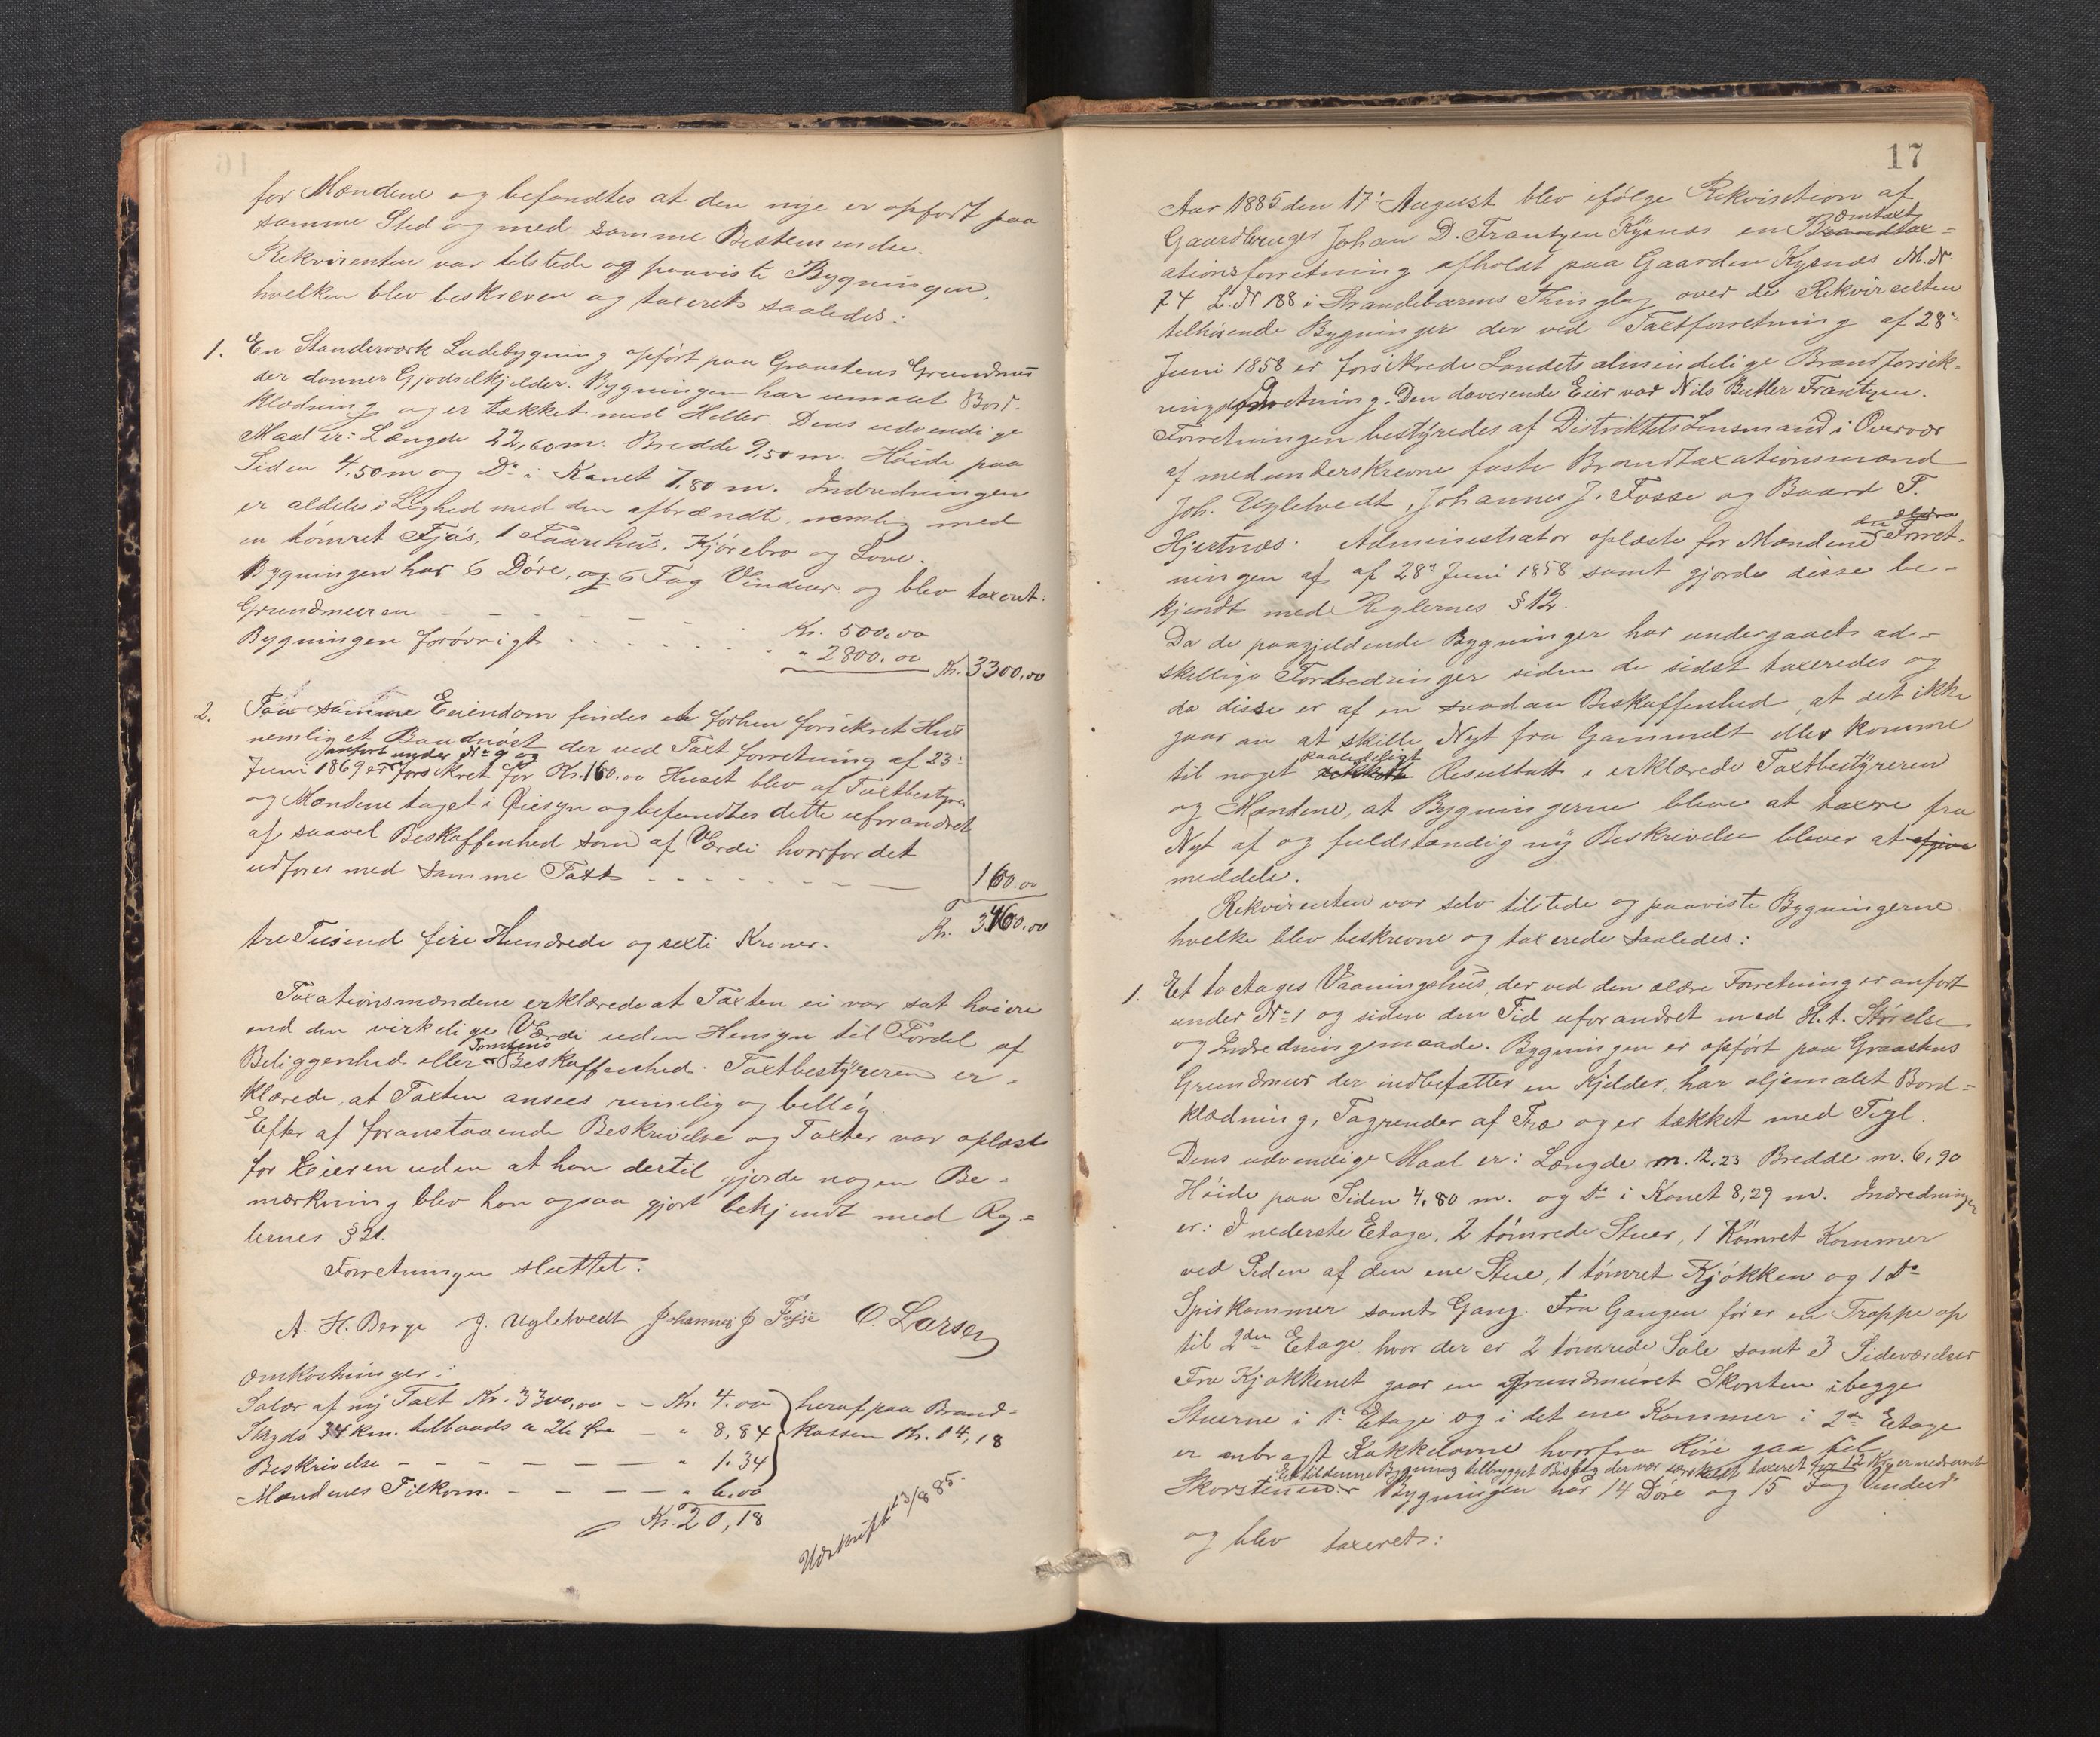 for Mændene og befandtes at den nye er opført paa
samme Sted og med samme Bestemmelse.
Rekvirenten var tilstede og paaviste Bygningen,
hvilken blev beskreven og taxeret saaledes:
1. En Standerværk Ladebygning opført paa Graastens Grundmur
der danner Gjødselkjelder. Bygningen har umalet Bord-
klædning og er tækket med Heller. Dens udvendige
Maal er: Længde 22,60 m. Bredde 9,50 m. Høide paa
Siden 4,50 m og Do i Rønet 7.80 m. Indredningen
er aldeles i Lighed med den afbrændte, nemlig med
en tømret Fjøs, 1 Faarehus, Kjørebro og Love.
Bygningen har 6 Døre, og 6 Fag Vinduer og blev taxeret:
Grundmuren - - - - - Kr. 500,00
Bygningen forøvrigt . . . . . " 2800.00 Kr. 3300.00
2. Paa samme Eiendom findes et forhen forsikret Hus
nemlig et Baadnøst der ved Taxtforretning af 23:
anført under No 9 og
Juni 1869 er forsikret for Kr. 160.00 Huset blev af Taxtbestyrer
og Mændene taget i Øiesyn og befandtes dette uforandret
af saavel Beskaffenhed som af Værdi hvorfor det
udføres med samme Taxt - - - - - 160.00
Kr. 3460.00
tre Tusind fire Hundrede og sexti Kroner.
Taxationsmændene erklærede at Taxten ei var sat høiere
end den virkelige Værdi uden Hensyn til Fordel af
Tomtens
Beliggenhed eller Beskaffenhed. Taxtbestyreren er-
klærede, at Taxten ansees rimelig og billig.
Efter af foranstaaende Beskrivelse og Taxter var oplæst
for Eieren uden at han dertil gjorde nogen Be-
mærkning blev han ogsaa gjort bekjendt med Reg-
lernes § 21.
Forretningen sluttet.
A. H. Berge J. Ugletvedt Johannes J Fosse O. Larsen
Omkostninger:
Salær af ny Taxt Kr. 3300,00 - - Kr. 4.00 heraf paa Brand-
Skyds 34 km. tilbaads a 26 Øre - " 8,84 kassen Kr. 14,18
Beskrivelse - - - - - " 1.34
Mændenes Tilkom. - - - - " 6.00
Kr. 20,18
Udskrift 23/8 85.
17
Aar 1885 den 17: August blev ifølge Rekvisition af
omtaxt
Gaardbruger Johan D. Frantzen Kysnæs en Brandtax-
ationsforretning afholdt paa Gaarden Kysnæs M.Nr.
74 L.Nr 188 i Strandebarms Thinglag over de Rekvirenten
tilhørende Bygninger der ved Taxtforretning af 28:
Juni 1858 er forsikrede Landets almindelige Brandforsik-
ringsindretning. Den daværende Eier var Nils Butler Frantzen.
Forretningen bestyredes af Distriktets Lensmand i Overvær
af medunderskrevne faste Brandtaxationsmænd
Joh. Ugletvedt, Johannes J. Fosse og Baard T.
den ældre
Hjertnæs. Administrator oplæste for Mændene Forret-
ningen af af 28: Juni 1858 samt gjorde disse be-
kjendt med Reglernes § 12.
Da de paagjeldende Bygninger har undergaaet ad-
skellige Forbedringer siden de sidst taxeredes og
da disse er af en saadan Beskaffenhed, at det ikke
gaar an at skille Nyt fra Gammelt eller komme
paalideligt
til noget sikkert Resultatt, erklærede Taxtbestyreren
og Mændene, at Bygningerne bleve at taxere fra
Nyt af og fuldstændig ny Beskrivelse blever at afgive
meddele.
Rekvirenten var selv tilstede og paaviste Bygningerne
hvelke blev beskrevne og taxerede saaledes:
1. Et toetages Vaaningshus, der ved den ældre Forretning er anført
under No 1 og siden den Tid uforandret med H.t. Størelse
og Indredningsmaade. Bygningen er opført paa Graastens
Grundmur der indbefatter en Kjelder, har oljemalet Bord-
klædning, Tagrender af Træ og er tækket med Tegl.
Dens udvendige Maal er: Længde m. 12,23 Bredde m. 6,90
Høide paa Siden 4,80 m. og Do i Rønet 8,29 m. Indredningen
er: I nederste Etage, 2 tømrede Stuer, 1 tømret Kammer
ved Siden af den ene Stue, 1 tømret Kjøkken og 1 Do
Spiskammer samt Gang. Fra Gangen fører en Trappe op
til 2den Etage hvor der er 2 tømrede Sale samt 3 Sideværelser
Fra Kjøkkenet gaar en grundmuret Skorsten i begge
Stuerne i 1: Etage og i det ene Kammer i 2den Etage
er anbragt Kakkelovne hvorfra Rør gaa til
Et til denne Bygning tilbygget Bislag der var særskilt taxeret for 12 Kr. er nedrevet
Skorstenen. Bygningen har 14 Døre og 15 Fag Vinduer
og blev taxeret: